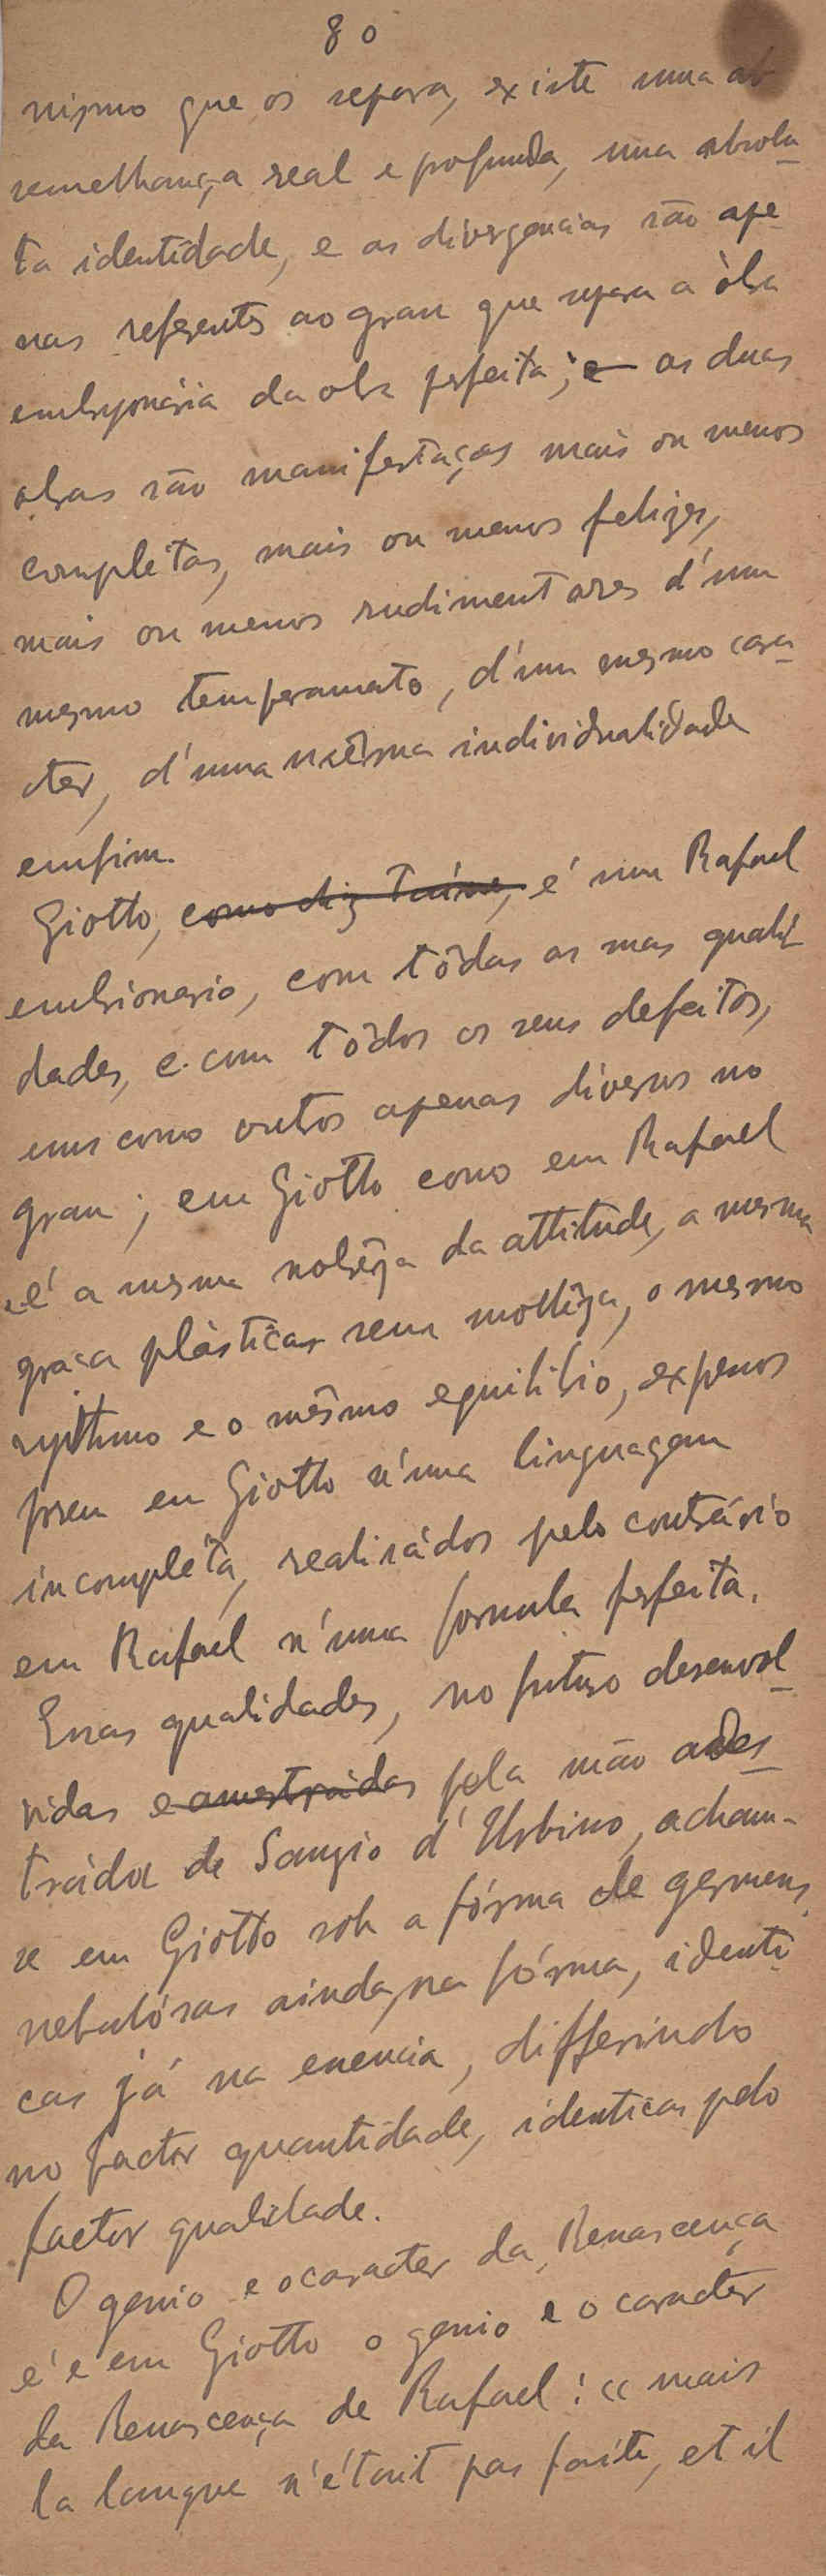 80
nismo que os separa, existe uma
semelhança real e profunda, uma absolu-
ta identidade, e as divergencias são ape
nas referentes ao grau que separa a óbra
embryonária da obra perfeita; e as duas
obras são manifestações mais ou menos
completas, mais ou menos felizes,
mais ou menos rudimentares d'um
mesmo temperamento, d'um mesmo cara-
cter, d'uma mêsma individualidade
emfim.
Giotto, como diz Taine, é um Rafael
embrionario, com tôdas as suas quali
dades, e com tôdos os seus defeitos,
uns como outros apenas diversos no
grau; em Giotto como em Rafael
é a mesma nobrêza da attitude, a mesma
graça plástica sem mollêza, o mesmo
rythmo e o mêsmo equilibrio, expressos
porem em Giotto n'uma linguagem
incomplêta, realisádos pelo contrário
em Rafael n'uma formula perfeita.
Essas qualidades, no futuro desenvol-
vidas e amestradas pela mão ades-
tráda de Sanzio d'Urbino, acham-
se em Giotto sob a fórma de germens,
nebulósas ainda, na fórma, identi
cas já na essencia, differindo
no factor quantidade, identicas pelo
factor qualidade.
O genio e o caracter da Renascença
é em Giotto o genio e o caracter
da Renascença de Rafael: «mais
la langue n'était pas faite, et il